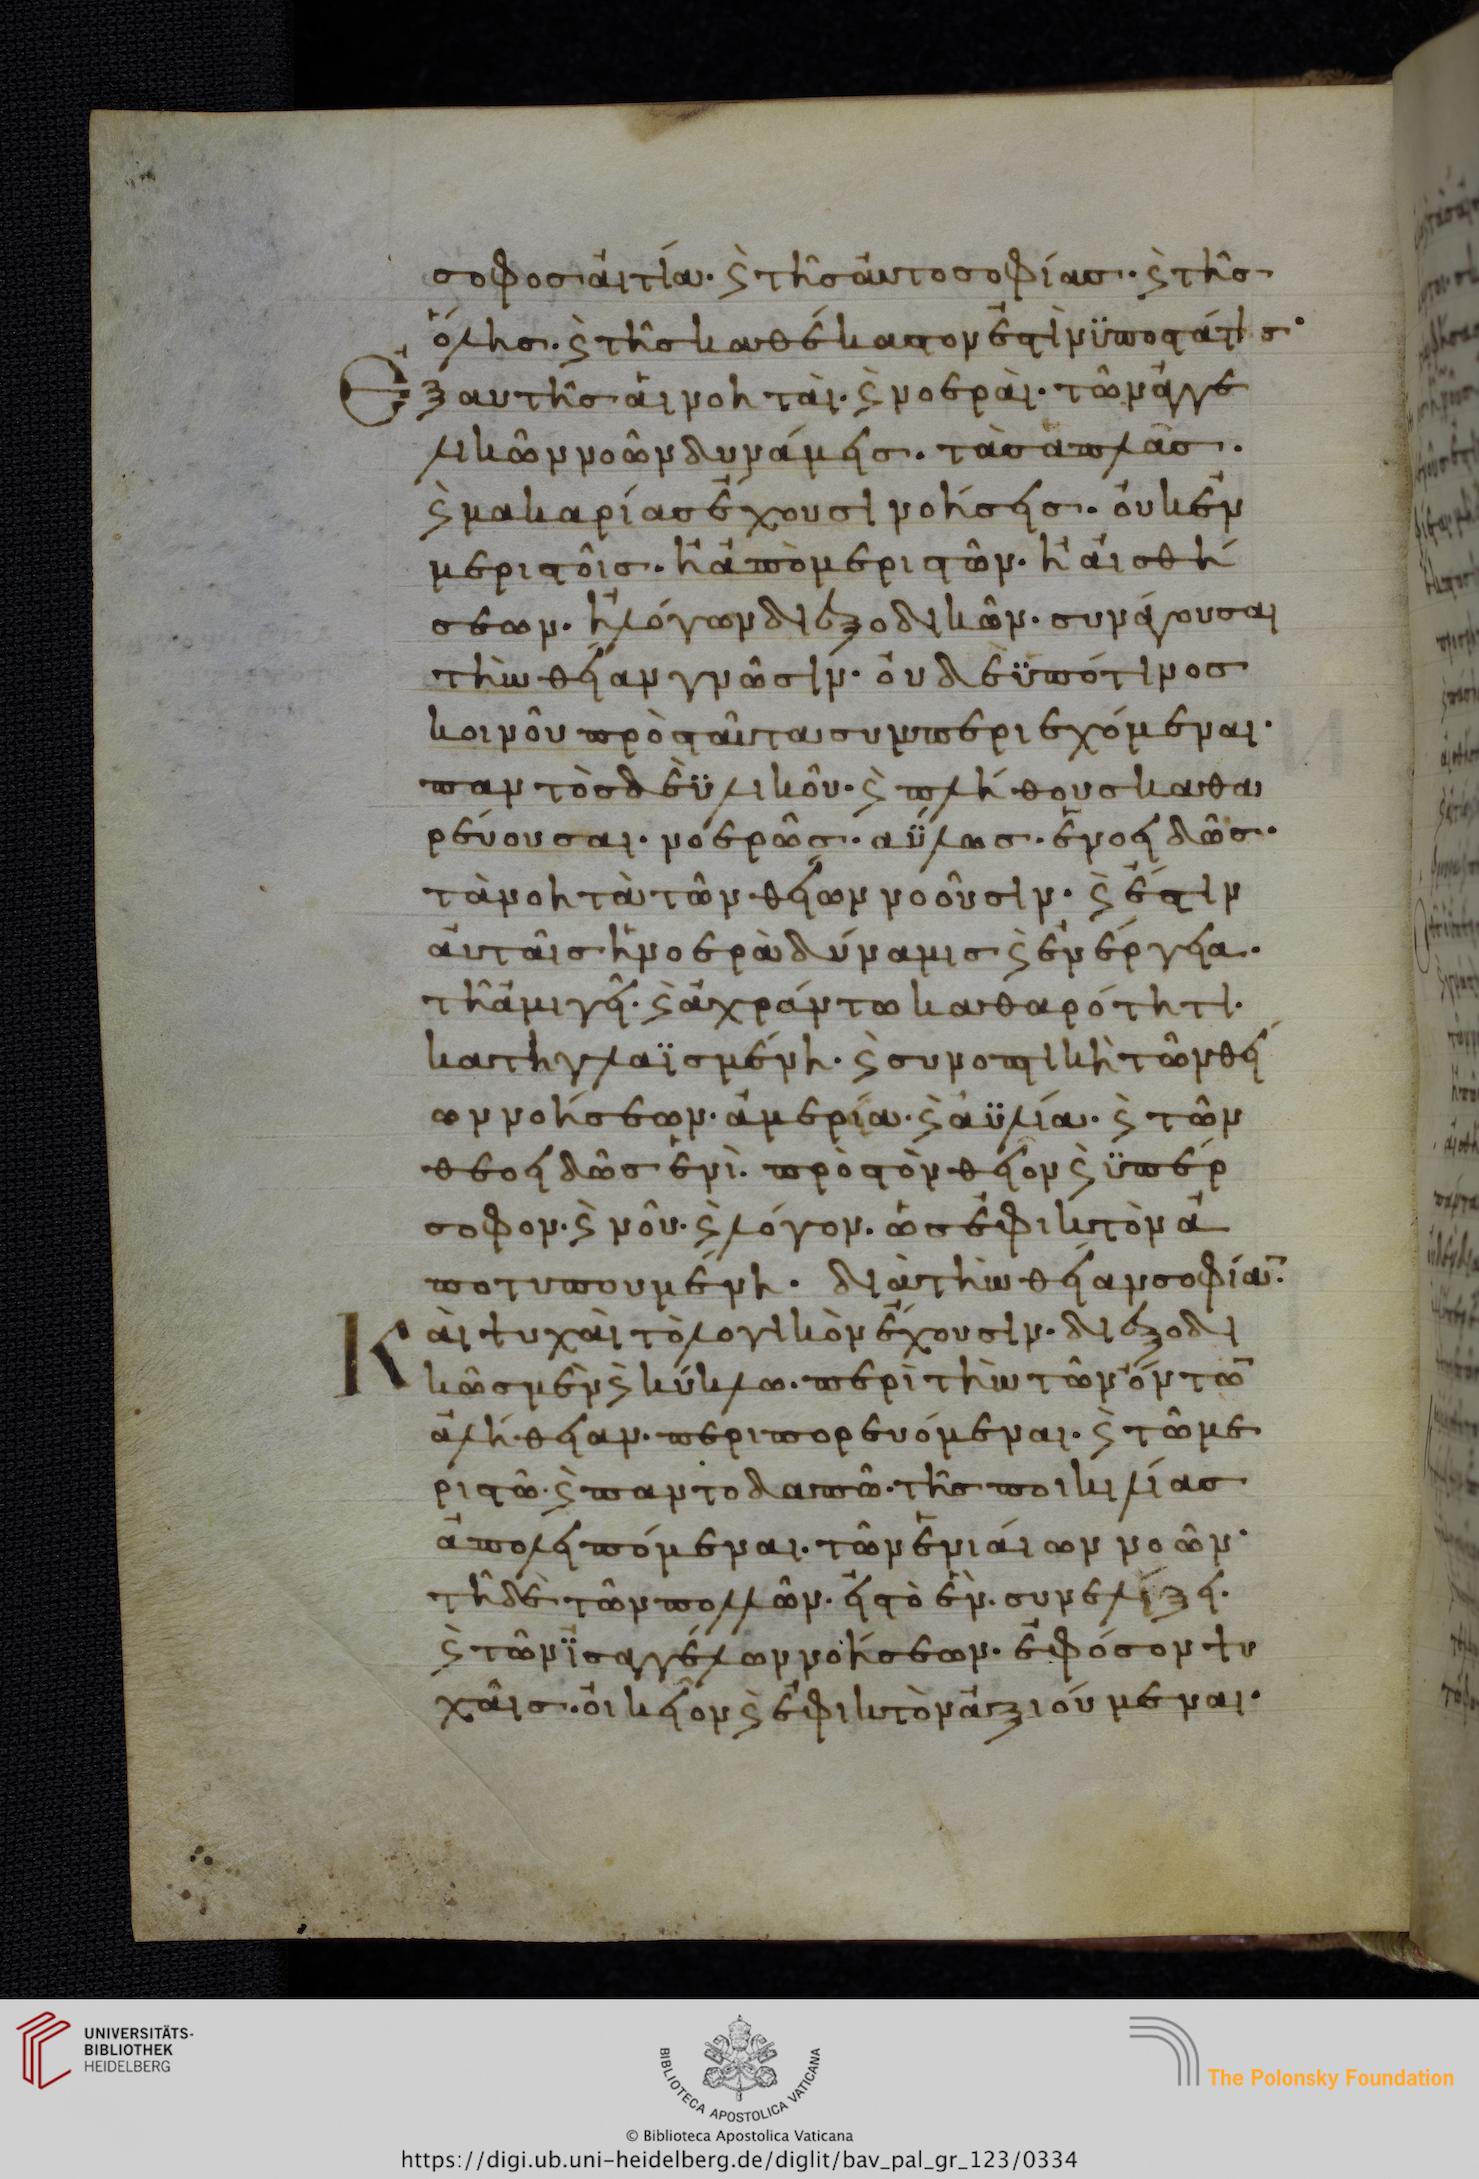 σοφοσ ἀιτία· ϛ̀ τῆσ ἀυτοσοφίασ· ϛ̀ τῆσ
ὅλησ· ϛ̀ τῆσ καθέκαστον ἐστὶν ϋποστάτισ·
Ἐξ αυτῆσ ἁι νοηταὶ· ϛ̀ νοεραὶ· τῶν ἀγγε
λικῶν νοῶν δυνάμεισ· τὰσ απλᾶσ·
ϛ̀ μακαρίασ ἔχουσι νοήσεισ· ὀυκ ἐν
μεριστοῖσ· ἢ ἀπὸ μεριστῶν· ἢ ἀισθή
σεων· ἢ λόγων διεξοδικῶν· συνάγουσαι
τὴν θείαν γνῶσιν· ὀυδὲ ϋπό τινοσ
κοινοῦ πρὸσ ταῦτα συμπεριεχόμεναι·
παντὸσ δὲ ϋλικοῦ· ϛ̀ πλήθουσ καθα
ρεύουσαι· νοερῶσ· αΰλωσ· ἑνοειδῶσ·
τὰ νοητὰ τῶν θείων νοοῦσιν· ϛ̀ ἔστιν
ἀυταῖσ ἡ νοερὰ δύναμισ ϛ̀ ἐνέργεια·
τῆ ἀμιγεῖ· ϛ̀ ἀχράντω καθαρότητι·
κατηγλαϊσμένη· ϛ̀ συνοπτικὴ τῶν θεί
ων νοήσεων· ἀμερία· ϛ̀ ἀϋλία· ϛ̀ τῶν
θεοειδῶσ ἑνὶ· πρὸσ τὸν θεῖον ϛ̀ ϋπέρ
σοφον· ϛ̀ νοῦν· ϛ̀ λόγον· ὡσ ἐφικτὸν ἀ
ποτυπουμένη· διὰ τὴν θείαν σοφίαν:
Καὶ ψυχαὶ τὸ λογικὸν ἔχουσιν· διεξοδι
κῶσ μὲν ϛ̀ κύκλω· περὶ τὴν τῶν ὄντων
ἀλήθειαν· περιπορευόμεναι· ϛ̀ τῶ με
ριστῶ· ϛ̀ παντοδαπῶ· τῆσ ποικιλίασ
ἀπολειπόμεναι· τῶν ἑνιάιων νοῶν·
τῆ δὲ τῶν πολλῶν· εἰσ τὸ ἓν· συνελίξει·
ϛ̀ τῶν ϊσαγγέλων νοήσεων· ἐφόσον ψυ
χαῖσ· ὀικεῖον ϛ̀ ἐφικτὸν ἀξιούμεναι·
UNIVERSITÄTS-
BIBLIOTHEK
HEIDELBERG
BIBLIOTECA APOSTOLICA VATICANA
The Polonsky Foundation
© Biblioteca Apostolica Vaticana
https://digi.ub.uni-heidelberg.de/diglit/bav_pal_gr_123/0334